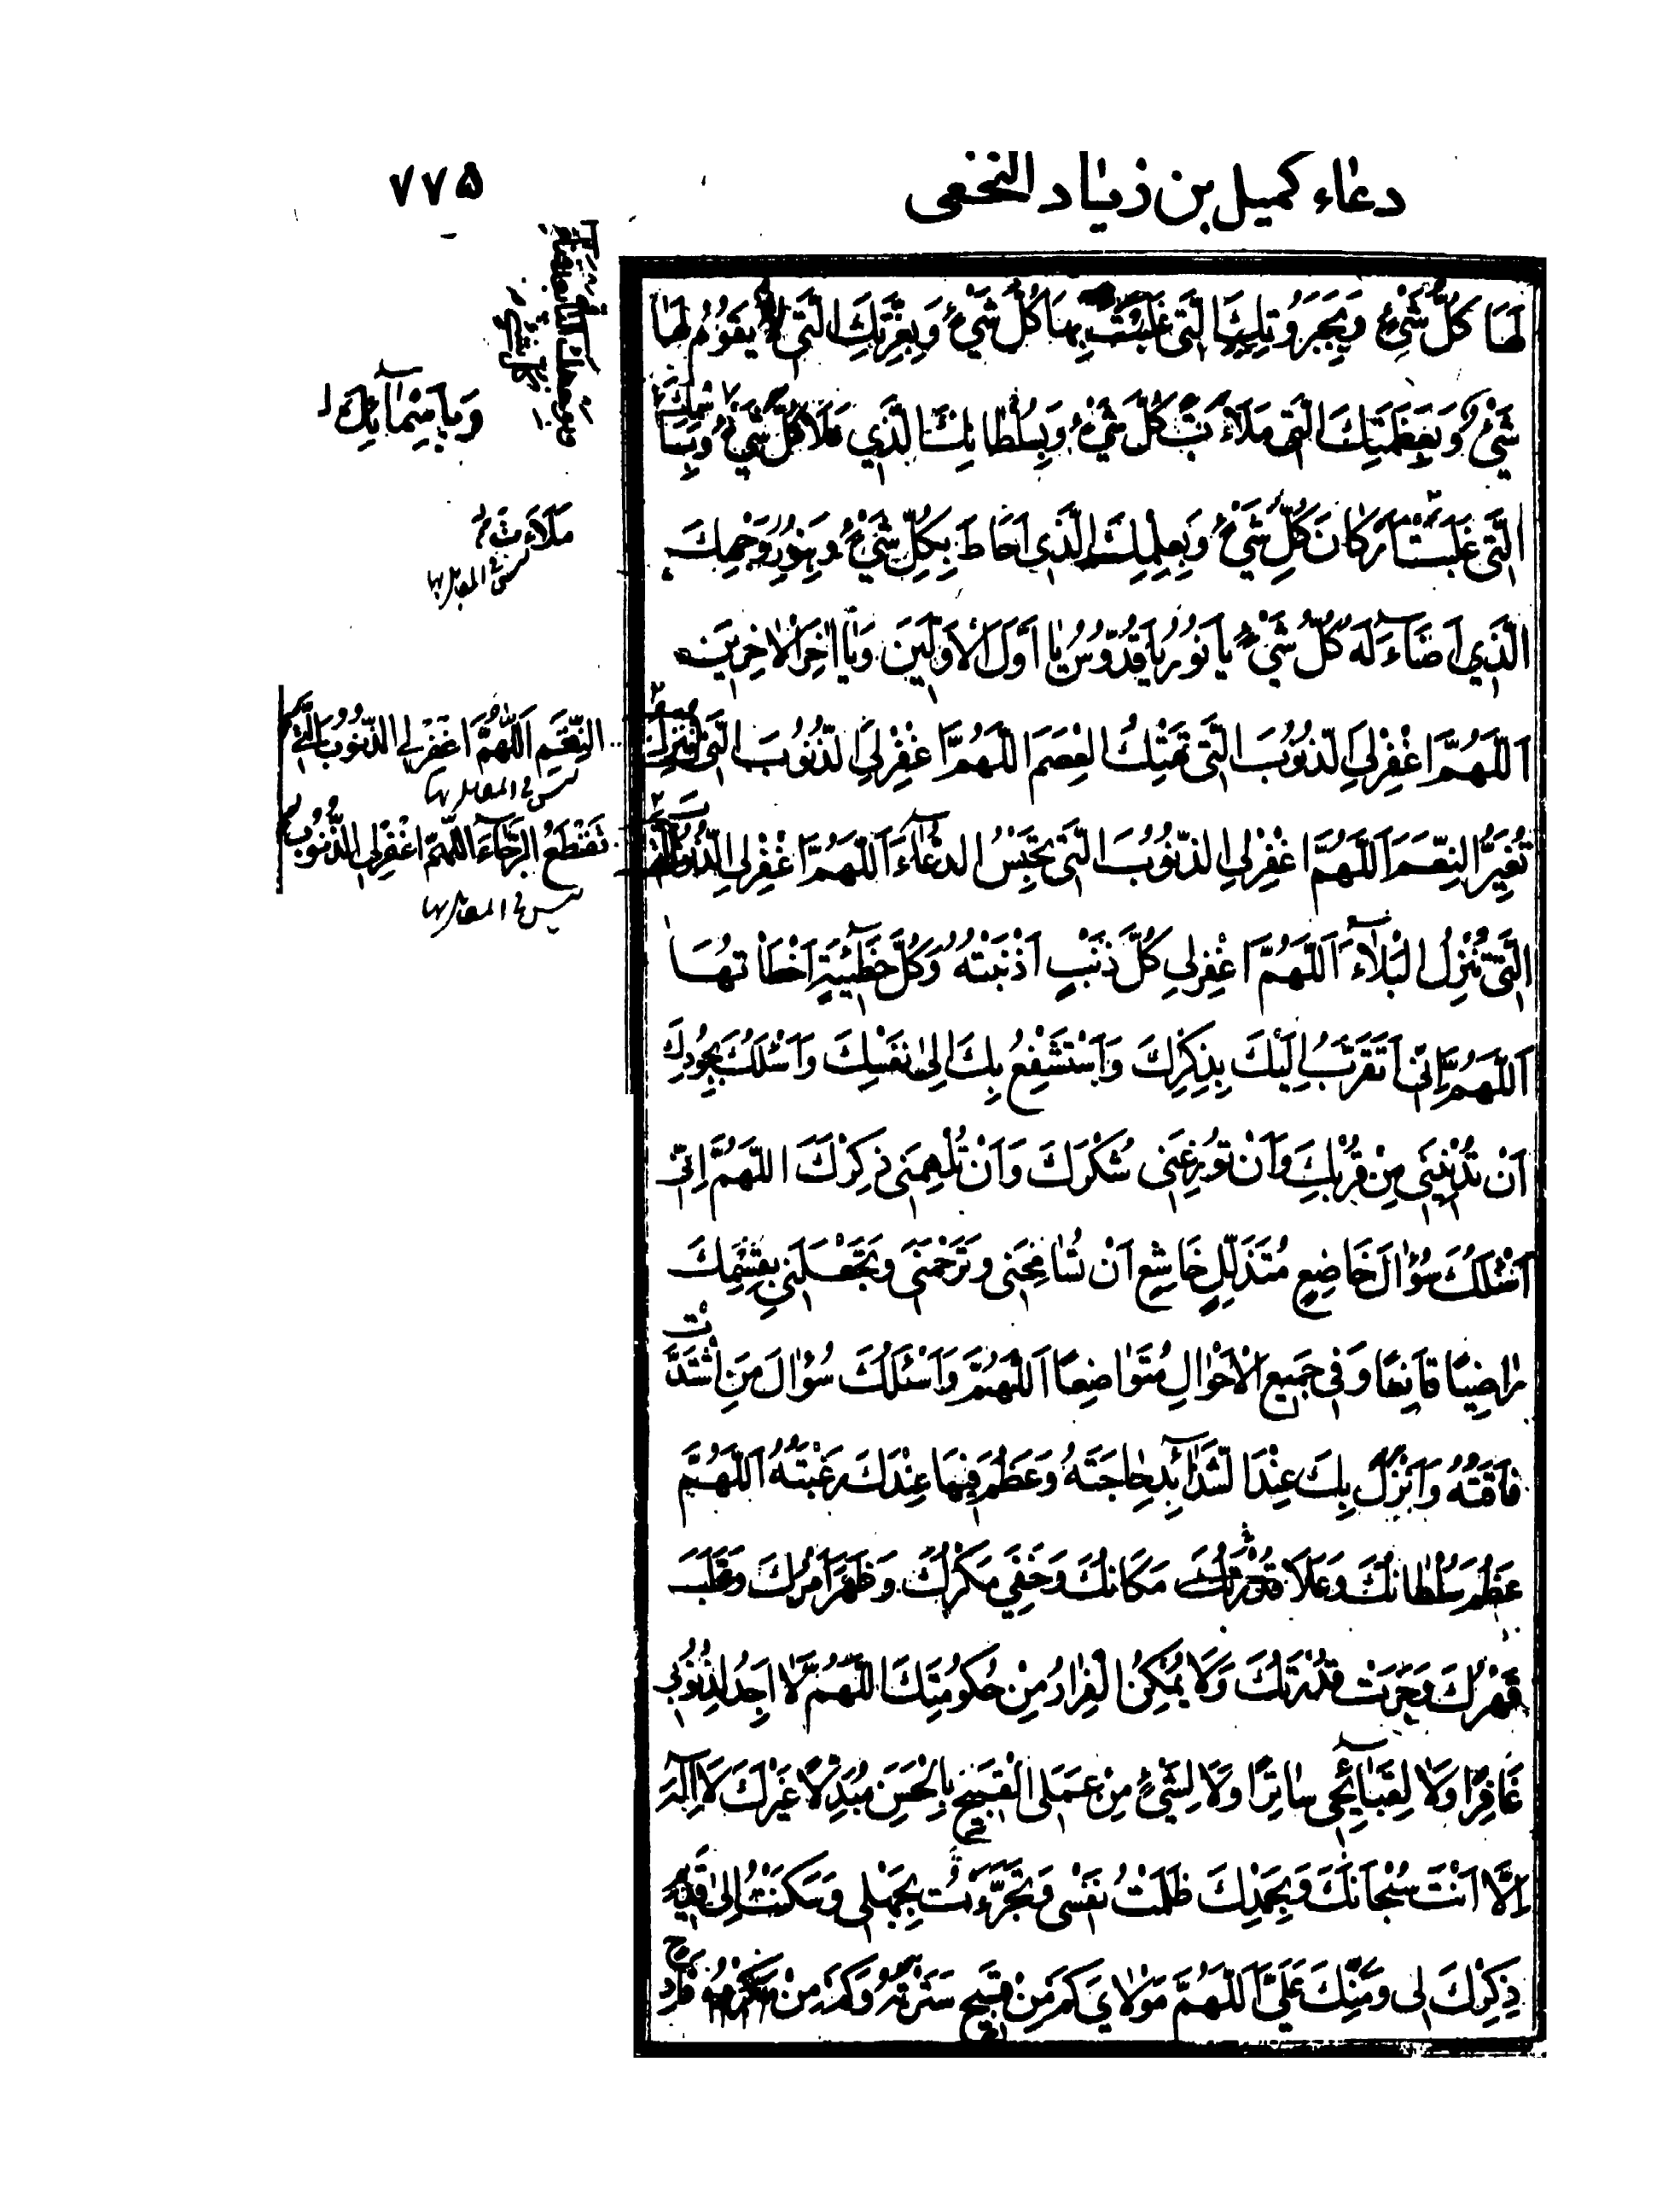 دعاء كميل بن زياد النخعى
٧٧۵
لَهَا كُلُّ شَيْءٍ وَبِجَبَرُوتِكَ الَّتي غَلَبْتَ بِهَا كُلَّ شَيْءٍ وَبِعِزَّتِكَ الَّتي لَا يَقُومُ لَهَا
شَيْءٌ وَبِعَظَمَتِكَ الَّتي مَلَأَتْ كُلَّ شَيْءٍ وَبِسُلْطَانِكَ الَّذي عَلَا كُلَّ شَيْءٍ
الَّتي غَلَبَتْ اَرْكَانَ كُلِّ شَيْءٍ وَبِعِلْمِكَ الَّذي اَحَاطَ بِكُلِّ شَيْءٍ وَبِنُورِ وَجْهِكَ
الَّذي اَضَاءَ لَهُ كُلُّ شَيْءٍ يَا نُورُ يَا قُدُّوسُ يَا اَوَّلَ الْاَوَّلينَ وَيَا اٰخِرَ الْاٰخِرينَ
اَللّهُمَّ اغْفِرْ لِيَ الذُّنُوبَ الَّتي تَهْتِكُ الْعِصَمَ اَللّهُمَّ اغْفِرْ لِيَ الذُّنُوبَ الَّتي تُنْزِلُ
تُغَيِّرُ النِّعَمَ اَللّهُمَّ اغْفِرْ لِيَ الذُّنُوبَ الَّتي تَحْبِسُ الدُّعَاءَ اَللّهُمَّ اغْفِرْ لِيَ الذُّنُوبَ
الَّتي تُنْزِلُ الْبَلَاءَ اَللّهُمَّ اغْفِرْ لي كُلَّ ذَنْبٍ اَذْنَبْتُهُ وَكُلَّ خَطيئَةٍ اَخْطَأْتُهَا
اَللّهُمَّ اِنّي اَتَقَرَّبُ اِلَيْكَ بِذِكْرِكَ وَاَسْتَشْفِعُ بِكَ اِلىٰ نَفْسِكَ وَاَسْئَلُكَ بِجُودِكَ
اَنْ تُدْنِيَني مِنْ قُرْبِكَ وَاَنْ تُوزِعَني شُكْرَكَ وَاَنْ تُلْهِمَني ذِكْرَكَ اللّهُمَّ اِنّي
اَسْئَلُكَ سُؤَالَ خَاضِعٍ مُتَذَلِّلٍ خَاشِعٍ اَنْ تُسَامِحَني وَتَرْحَمَني وَتَجْعَلَني بِقِسْمِكَ
رَاضِيًا قَانِعًا وَفي جَميعِ الْاَحْوَالِ مُتَوَاضِعًا اَللّهُمَّ وَاَسْئَلُكَ سُؤَالَ مَنِ اشْتَدَّتْ
فَاقَتُهُ وَاَنْزَلَ بِكَ عِنْدَ الشَّدَائِدِ حَاجَتَهُ وَعَظُمَ فيمَا عِنْدَكَ رَغْبَتُهُ اَللّهُمَّ
عَظُمَ سُلْطَانُكَ وَعَلَا مَكَانُكَ وَخَفِيَ مَكْرُكَ وَظَهَرَ اَمْرُكَ وَغَلَبَ
قَهْرُكَ وَجَرَتْ قُدْرَتُكَ وَلَا يُمْكِنُ الْفِرَارُ مِنْ حُكُومَتِكَ اللّهُمَّ لَا اَجِدُ لِذُنُوبي
غَافِرًا وَلَا لِقَبَائِحي سَاتِرًا وَلَا لِشَيْءٍ مِنْ عَمَلِيَ الْقَبيحِ بِالْحَسَنِ مُبَدِّلًا غَيْرَكَ لَا اِلٰهَ
اِلَّا اَنْتَ سُبْحَانَكَ وَبِحَمْدِكَ ظَلَمْتُ نَفْسي وَتَجَرَّأْتُ بِجَهْلي وَسَكَنْتُ اِلىٰ قَديمِ
ذِكْرِكَ لي وَمَنِّكَ عَلَيَّ اَللّهُمَّ مَوْلَايَ كَمْ مِنْ قَبيحٍ سَتَرْتَهُ وَكَمْ مِنْ
وَبِاَسْمَائِكَ
مَلَأَتْ
النِّقَمَ اَللّهُمَّ اغْفِرْ لِيَ الذُّنُوبَ الَّتي
تَقْطَعُ الرَّجَاءَ اَللّهُمَّ اغْفِرْ لِيَ الذُّنُوبَ